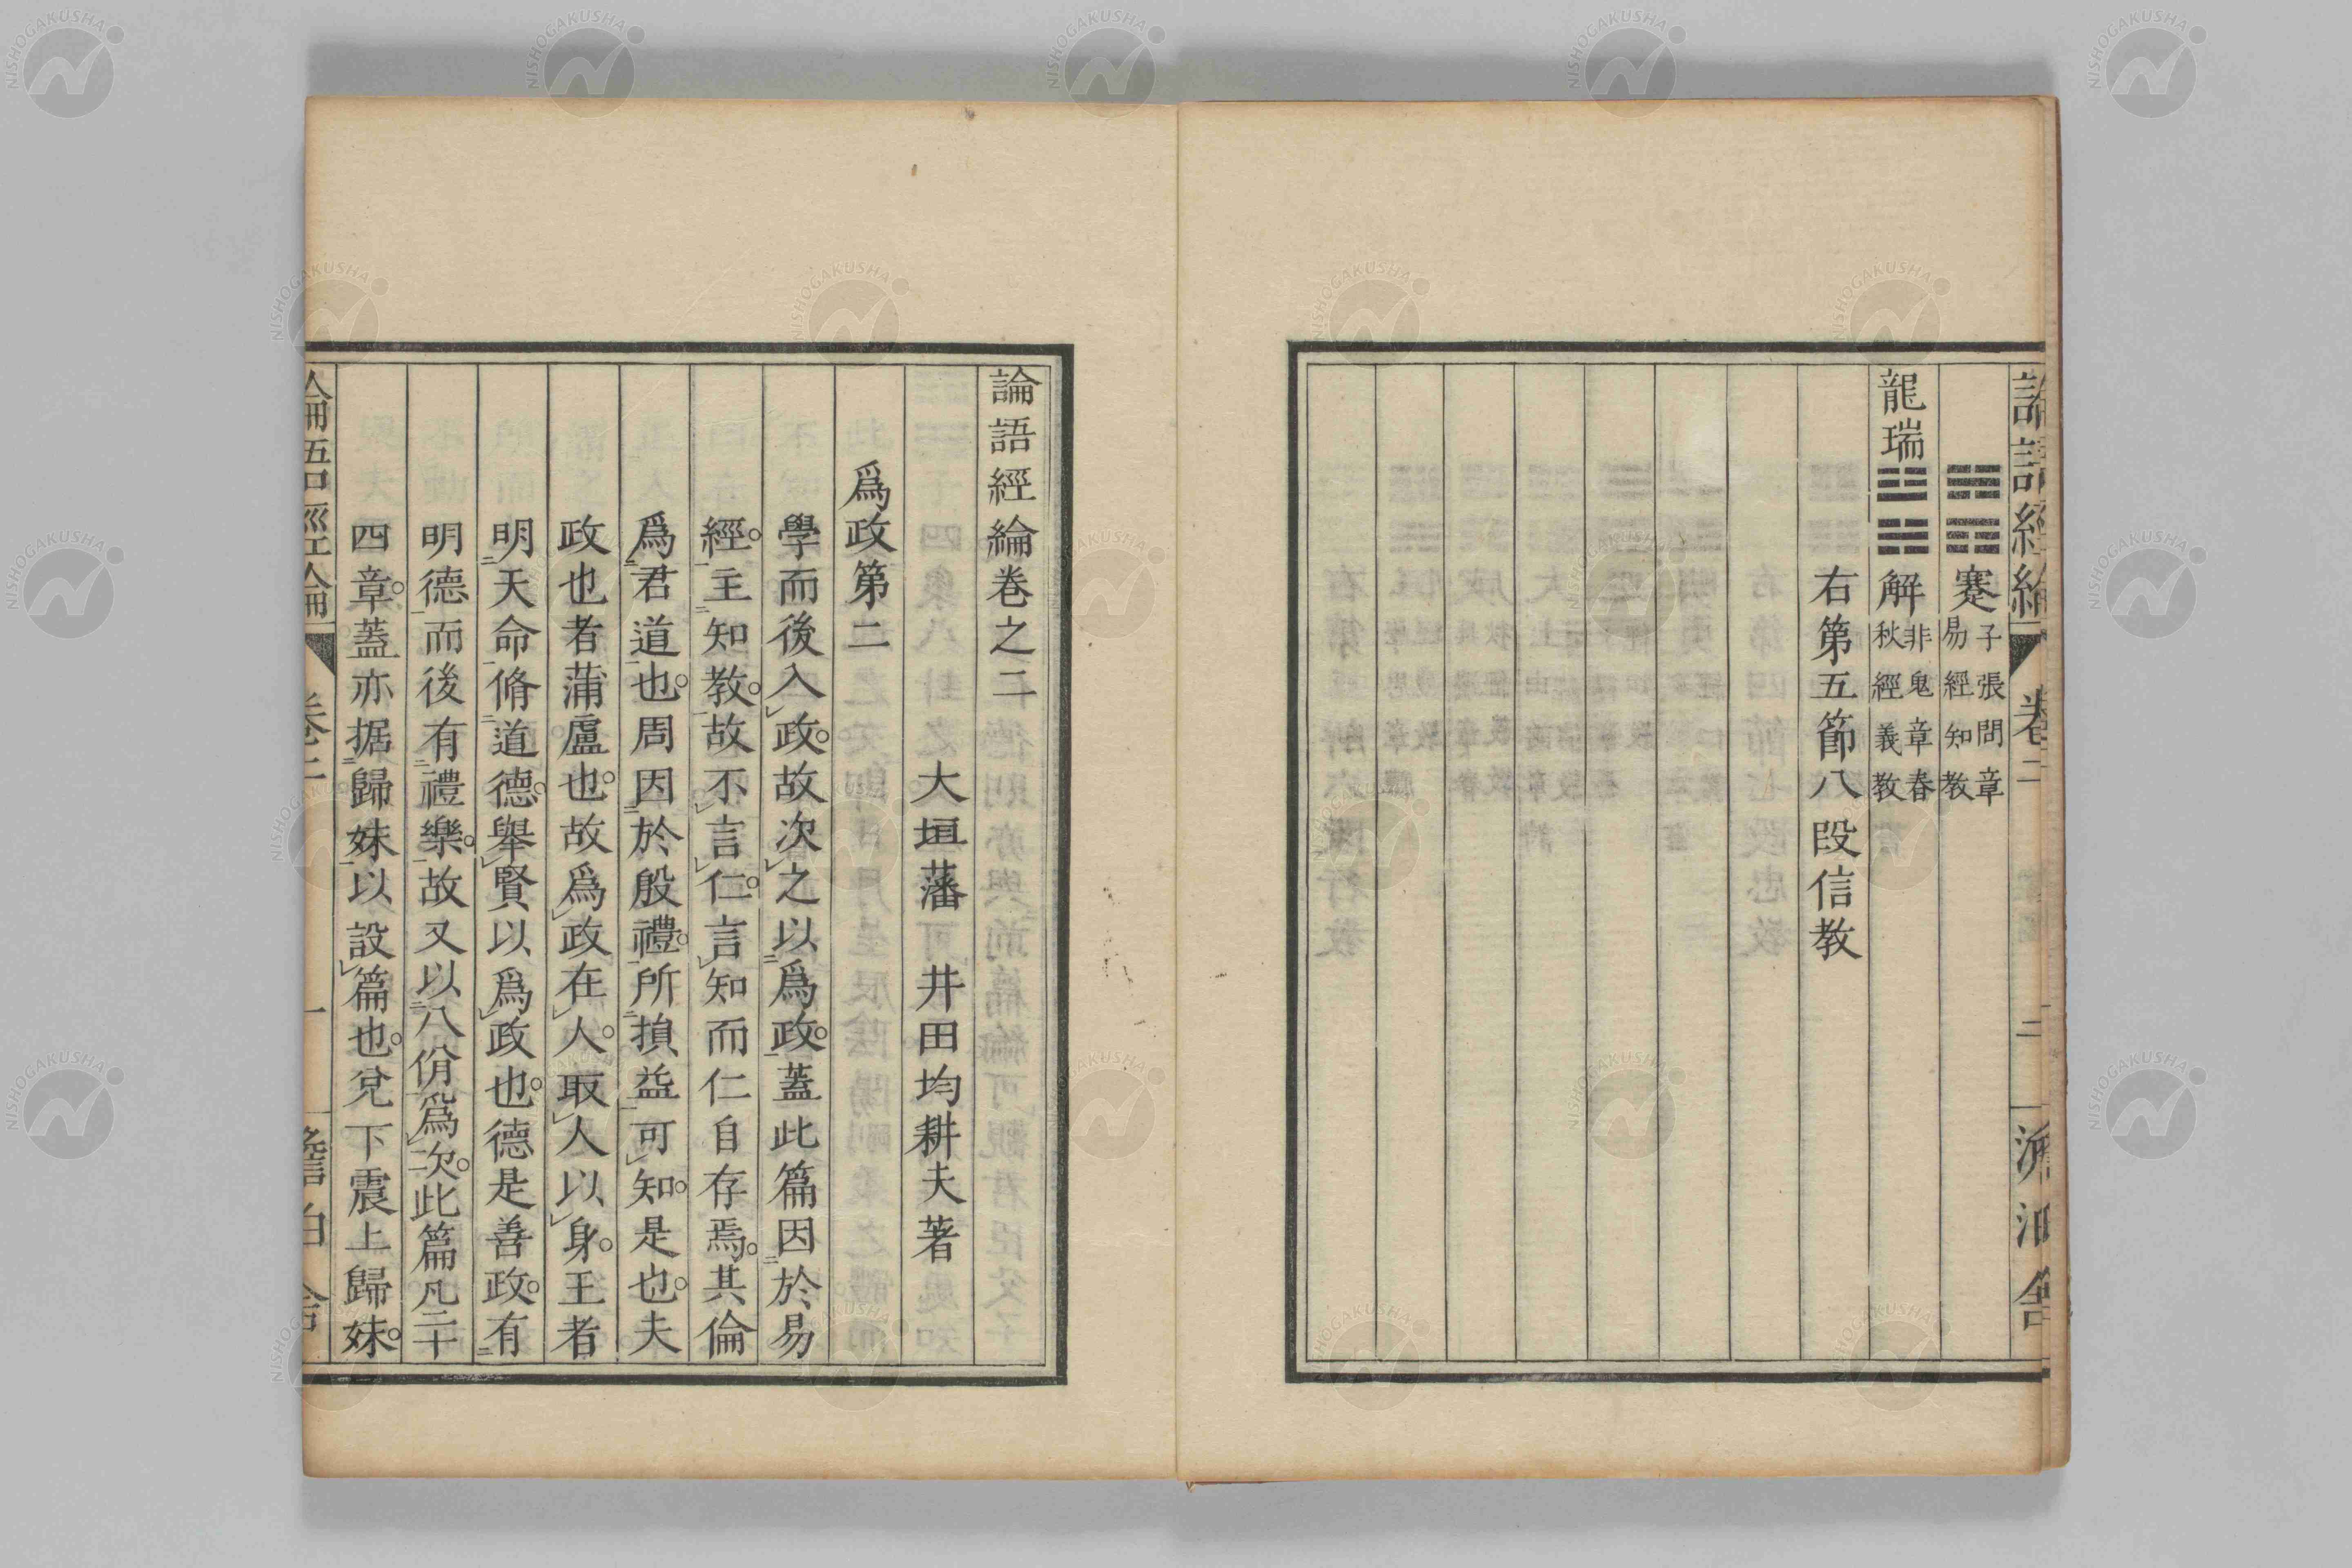 論語經綸 卷二 二 澹泊舍
䷦ 蹇 子張問章 易經知教
龍瑞 ䷧ 解 非鬼章春秋經義教
右第五節八段信教
論語經綸卷之二
大垣藩 井田均耕夫著
爲政第二
學而後入政。故次之以爲政。蓋此篇因於易
經。主知教。故不言仁。言知而仁自存焉。其倫
爲君道也。周因於殷禮。所損益可知。是也。夫
政也者蒲盧也。故爲政在人。取人以身。王者
明天命脩道德。舉賢以爲政也。德是善政。有
明德而後有禮樂。故又以八佾爲次。此篇凡二十
四章。蓋亦据歸妹以設篇也。兌下震上歸妹。
論語經綸 卷二 一 澹泊舍
NISHOGAKUSHA